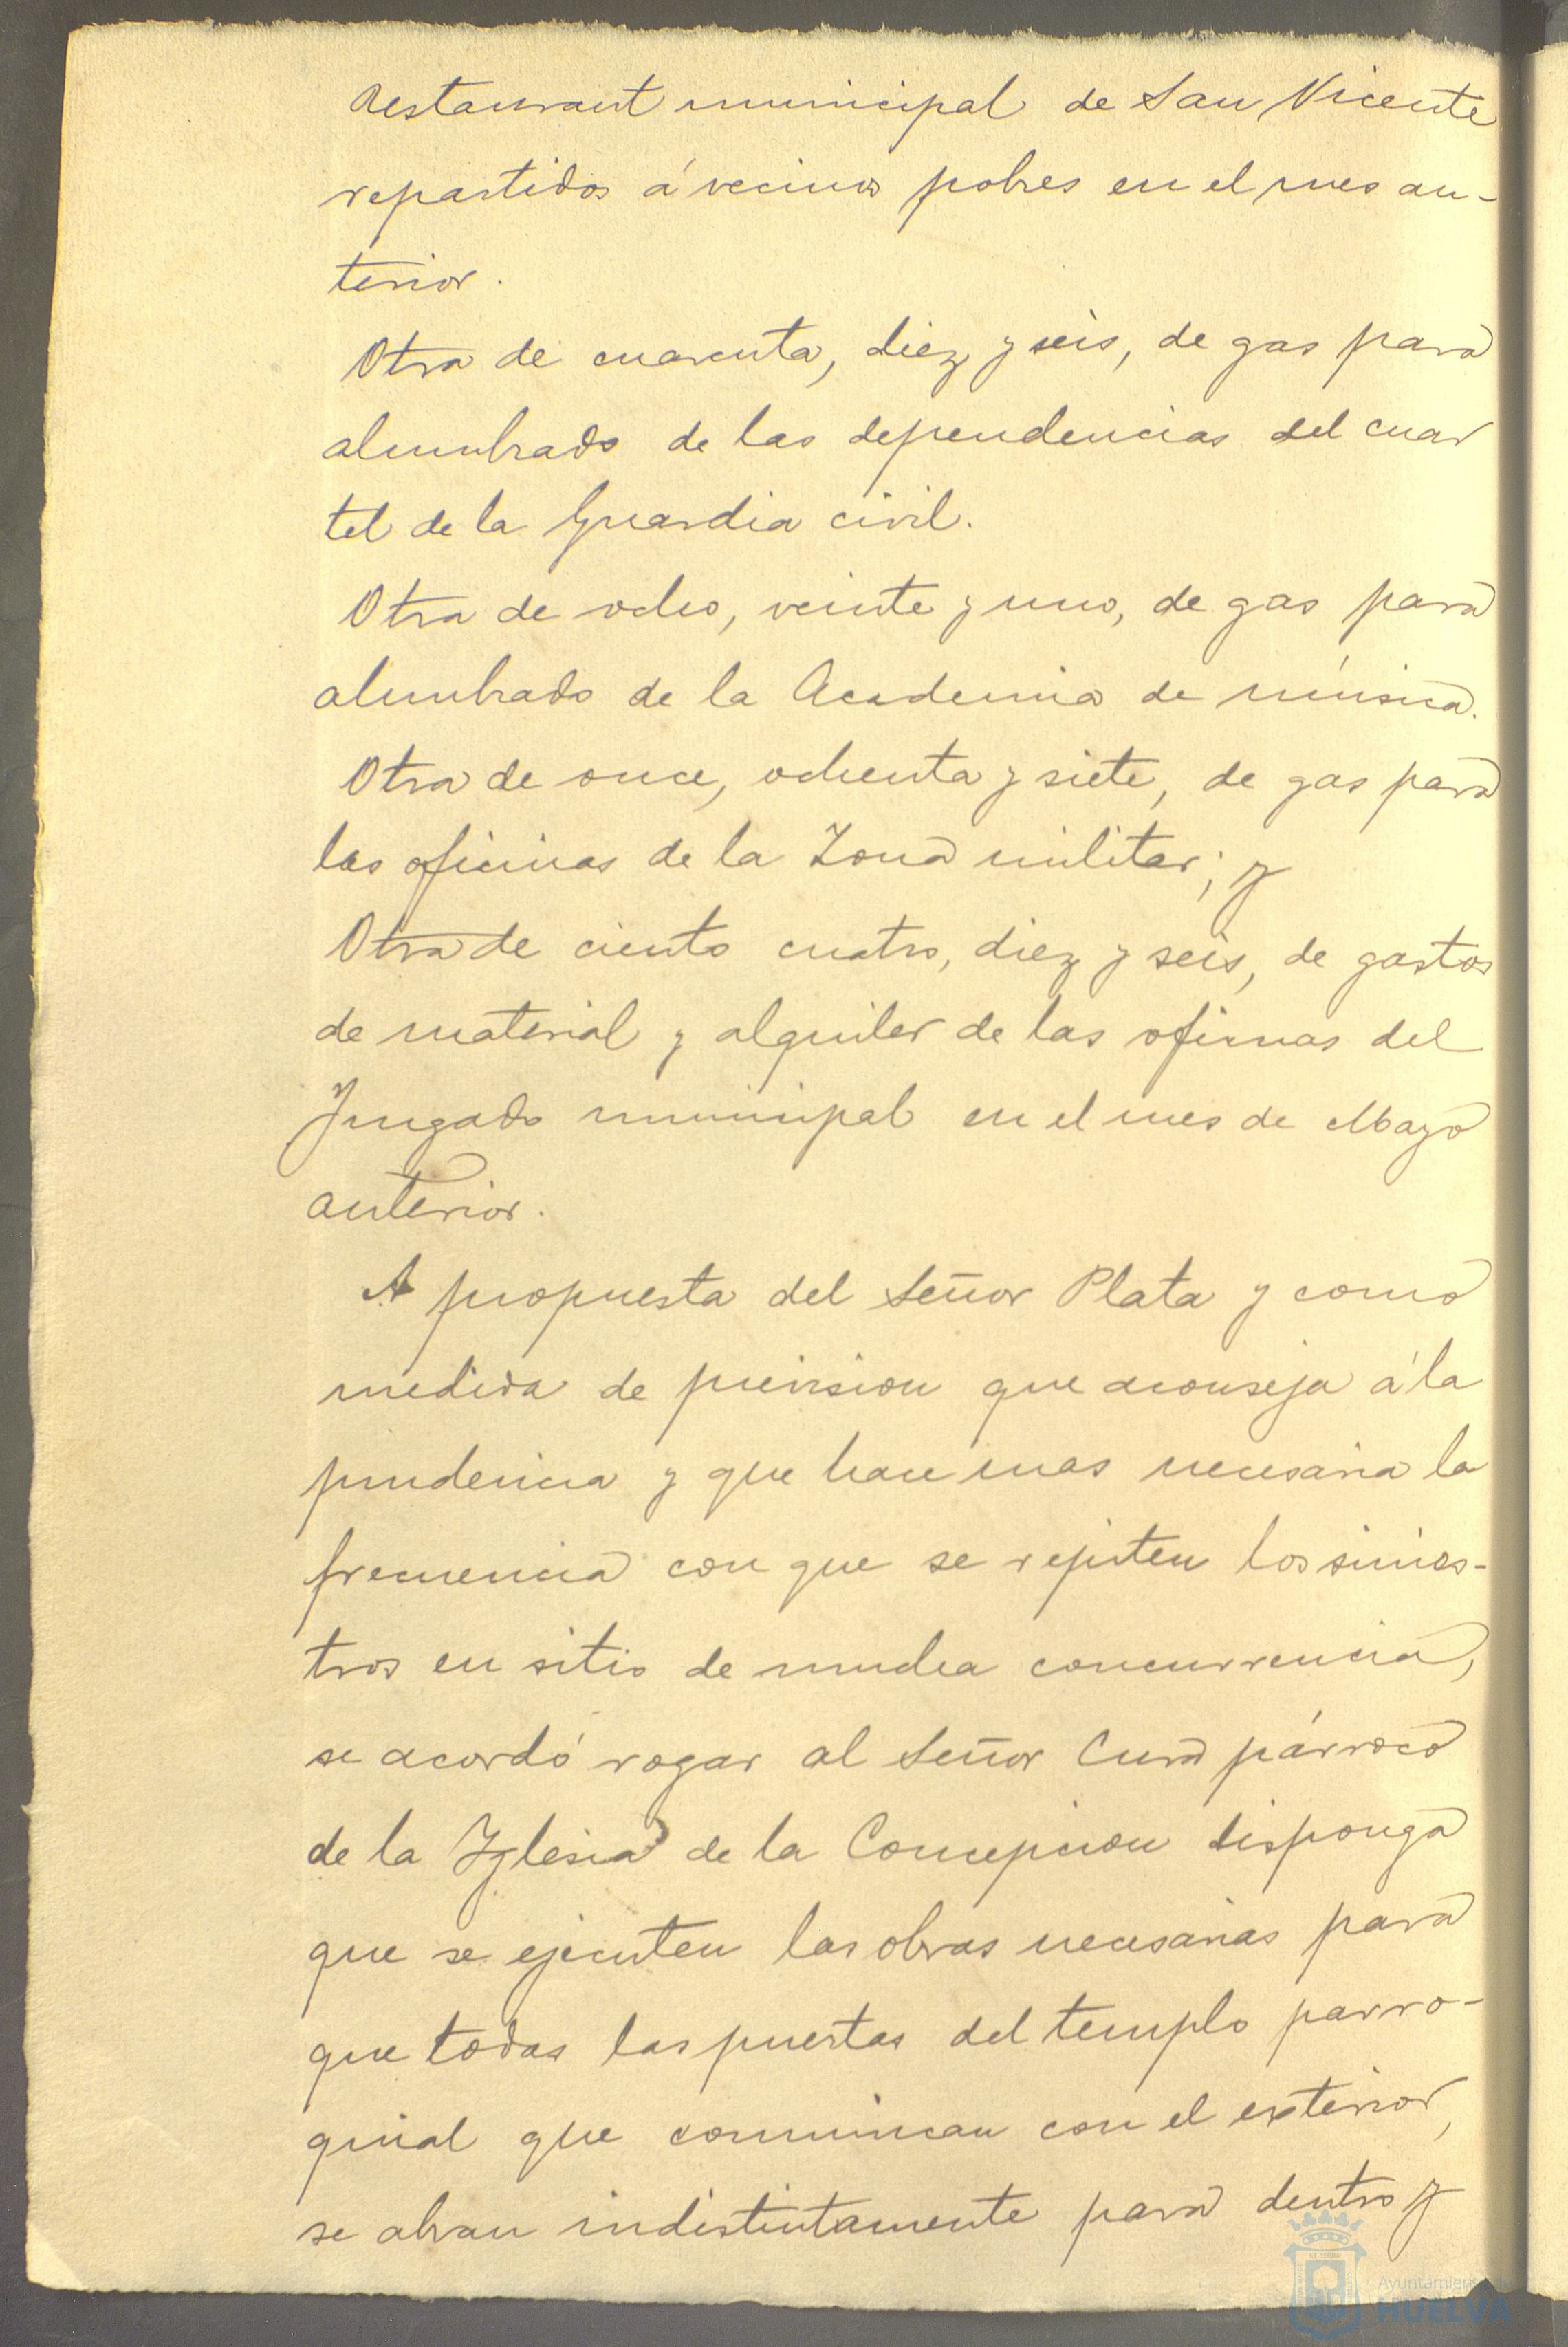 Restaurant municipal de San Vicente
repartidos á vecinos pobres en el mes an-
terior.
Otra de cuarenta, diez y seis, de gas para
alumbrado de las dependencias del cuar
tel de la Guardia civil.
Otra de ocho, veinte y uno, de gas para
alumbrado de la Academia de música.
Otra de once, ochenta y siete, de gas para
las oficinas de la Zona militar; y
Otra de ciento cuatro, diez y seis, de gastos
de material y alquiler de las oficinas del
Juzgado municipal en el mes de Mayo
anterior.
A propuesta del Señor Plata y como
medida de prevision que aconseja á la
prudencia y que hace mas necesaria la
frecuencia con que se repiten los sinies-
tros en sitio de mucha concurrencia,
se acordó rogar al Señor Cura párroco
de la Iglesia de la Concepcion disponga
que se ejecuten las obras necesarias para
que todas las puertas del templo parro-
quial que comunican con el exterior,
se abran indistintamente para dentro y
Ayuntamiento de
HUELVA